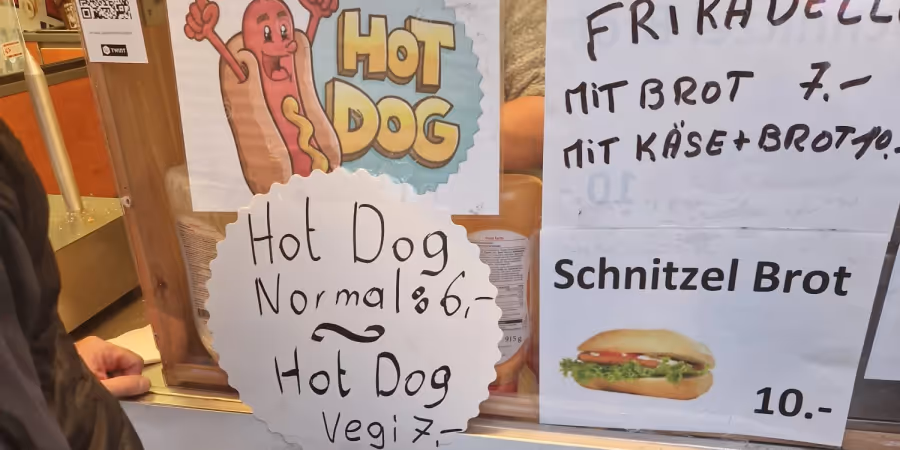 TWINT
HOT
DOG
Hot Dog
Normal: 6,-
Hot Dog
Vegi 7,-
MIT BROT 7.-
MIT KÄSE + BROT 10.-
Schnitzel Brot
10.-